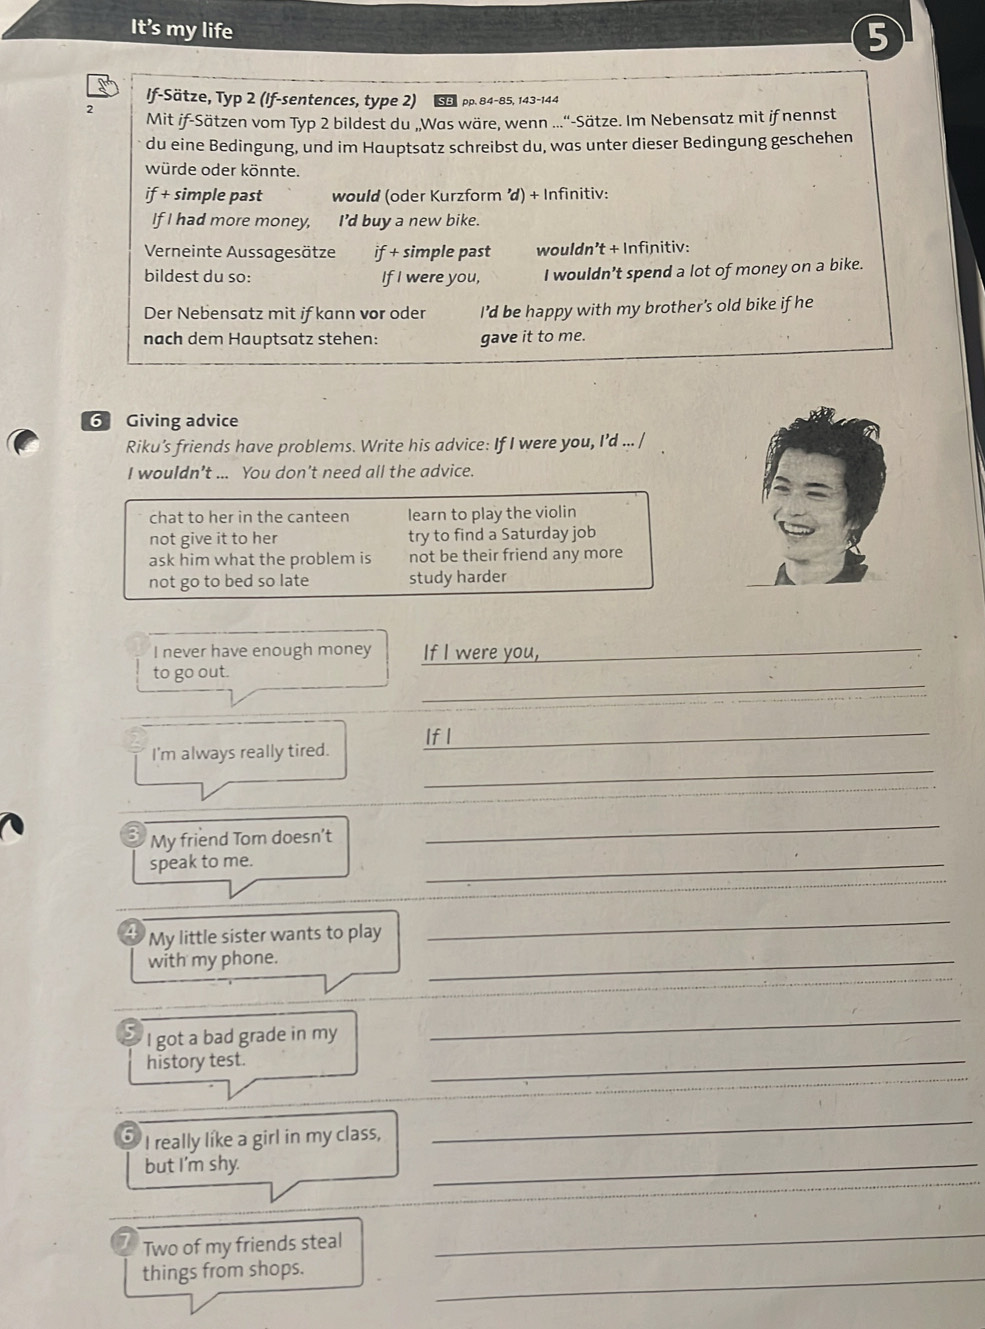 It's my life
5
2
If-Sätze, Typ 2 (If-sentences, type 2) SB pp. 84-85, 143-144
Mit if-Sätzen vom Typ 2 bildest du „Was wäre, wenn ...“-Sätze. Im Nebensatz mit if nennst
du eine Bedingung, und im Hauptsatz schreibst du, was unter dieser Bedingung geschehen
würde oder könnte.
if + simple past would (oder Kurzform 'd) + Infinitiv:
If I had more money, I'd buy a new bike.
Verneinte Aussagesätze if + simple past wouldn't + Infinitiv:
bildest du so: If I were you, I wouldn't spend a lot of money on a bike.
Der Nebensatz mit if kann vor oder I'd be happy with my brother's old bike if he
nach dem Hauptsatz stehen: gave it to me.
6 Giving advice
Riku's friends have problems. Write his advice: If I were you, I'd ... /
I wouldn't ... You don't need all the advice.
chat to her in the canteen learn to play the violin
not give it to her try to find a Saturday job
ask him what the problem is not be their friend any more
not go to bed so late study harder
1 I never have enough money If I were you,
to go out.
2 If I
I'm always really tired.
3 My friend Tom doesn't
speak to me.
4 My little sister wants to play
with my phone.
5 I got a bad grade in my
history test.
6 I really like a girl in my class,
but I'm shy.
7 Two of my friends steal
things from shops.